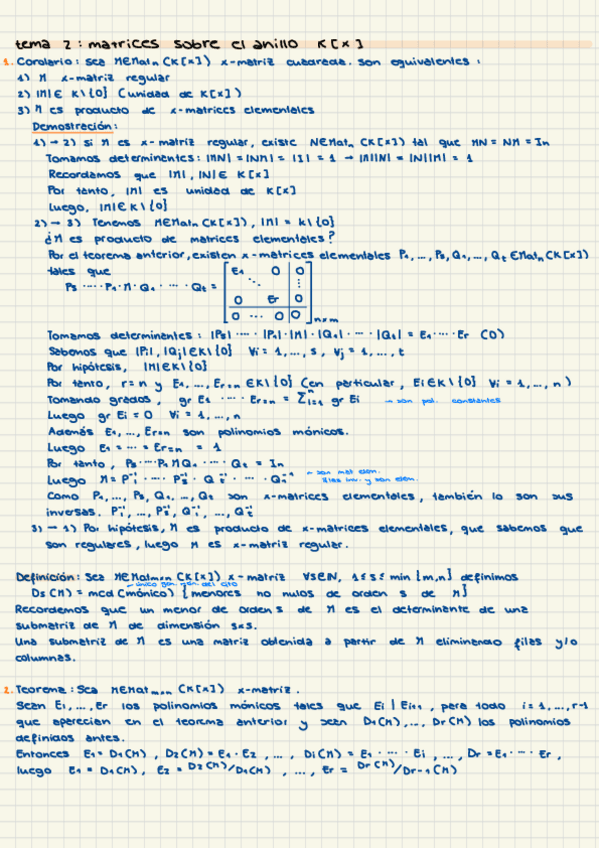 tema 2: matrices sobre el anillo K[x]
1. Corolario: sea M∈Matn (K[x]) x-matriz cuadrada. son equivalentes:
1) M x-matriz regular
2) |M|∈ K\{0} (unidad de K[x])
3) M es producto de x-matrices elementales
Demostración:
1) → 2) si M es x-matriz regular, existe N∈Matn (K[x]) tal que MN = NM = In
Tomamos determinantes: |MN| = |NM| = |I| = 1 → |M||N| = |N||M| = 1
Recordamos que |M|, |N| ∈ K[x]
Por tanto, |M| es unidad de K[x]
Luego, |M|∈ K\{0}
2) → 3) Tenemos M∈Matn (K[x]), |M| = K\{0}
¿M es producto de matrices elementales?
Por el teorema anterior, existen x-matrices elementales P1, ..., Ps, Q1, ..., Qt ∈Matn (K[x])
tales que
Ps · ... · P1 · M · Q1 · ... · Qt = [E1 0 0 ⋱ ⋮ 0 Er 0 0 ... 0 0] n×m
Tomamos determinantes: |Ps| · ... · |P1| · |M| · |Q1| · ... · |Qt| = E1 · ... · Er (0)
Sabemos que |Pi|, |Qj|∈K\{0} ∀i = 1, ..., s, ∀j = 1, ..., t
Por hipótesis, |M|∈K\{0}
Por tanto, r=n y E1, ..., Er=n ∈K\{0} (en particular, Ei∈K\{0} ∀i = 1, ..., n)
Tomando grados, gr E1 · ... · Er=n = Σⁿi=1 gr Ei → son pol. constantes
Luego gr Ei = 0 ∀i = 1, ..., n
Además E1, ..., Er=n son polinomios mónicos.
Luego E1 = ... = Er=n = 1
Por tanto, Ps · ... · P1 M Q1 · ... · Qt = In
Luego M = P1⁻¹ · ... · Ps⁻¹ · Qt⁻¹ · ... · Q1⁻¹ → son mat elem. x las inv. y son elem.
Como P1, ..., Ps, Q1, ..., Qt son x-matrices elementales, también lo son sus
inversas. P1⁻¹, ..., Ps⁻¹, Q1⁻¹, ..., Qt⁻¹
3) → 1) Por hipótesis, M es producto de x-matrices elementales, que sabemos que
son regulares, luego M es x-matriz regular.
Definición: sea M∈Matm×n (K[x]) x-matriz ∀s∈N, 1 ≤ s ≤ min {m,n} definimos
Ds(M) = mcd (mónico) {menores no nulos de orden s de M}
Recordemos que un menor de orden s de M es el determinante de una
submatriz de M de dimensión s×s.
Una submatriz de M es una matriz obtenida a partir de M eliminando filas y/o
columnas.
2. Teorema: Sea M∈Matm×n (K[x]) x-matriz.
Sean E1, ..., Er los polinomios mónicos tales que Ei | Ei+1, para todo i = 1, ..., r-1
que aparecian en el teorema anterior y sean D1(M), ..., Dr(M) los polinomios
definidos antes.
Entonces E1 = D1(M), D2(M) = E1 · E2, ..., Di(M) = E1 · ... · Ei, ..., Dr = E1 · ... · Er,
luego E1 = D1(M), E2 = D2(M)/D1(M), ..., Er = Dr(M)/Dr-1(M)